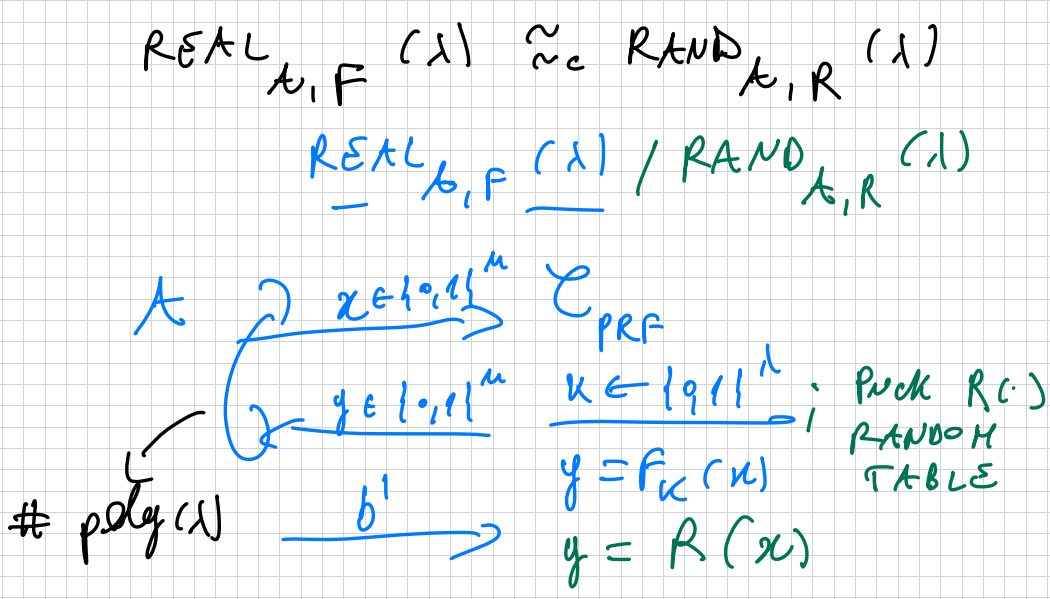 REAL_{A,F} (λ) ≈_c RAND_{A,R} (λ)
REAL_{A,F} (λ) / RAND_{A,R} (λ)
A x ∈ {0,1}^n C_{PRF}
y ∈ {0,1}^n k ← {0,1}^λ ; PICK R(·)
RANDOM
TABLE
y = F_K (x)
# poly(λ) b' y = R(x)